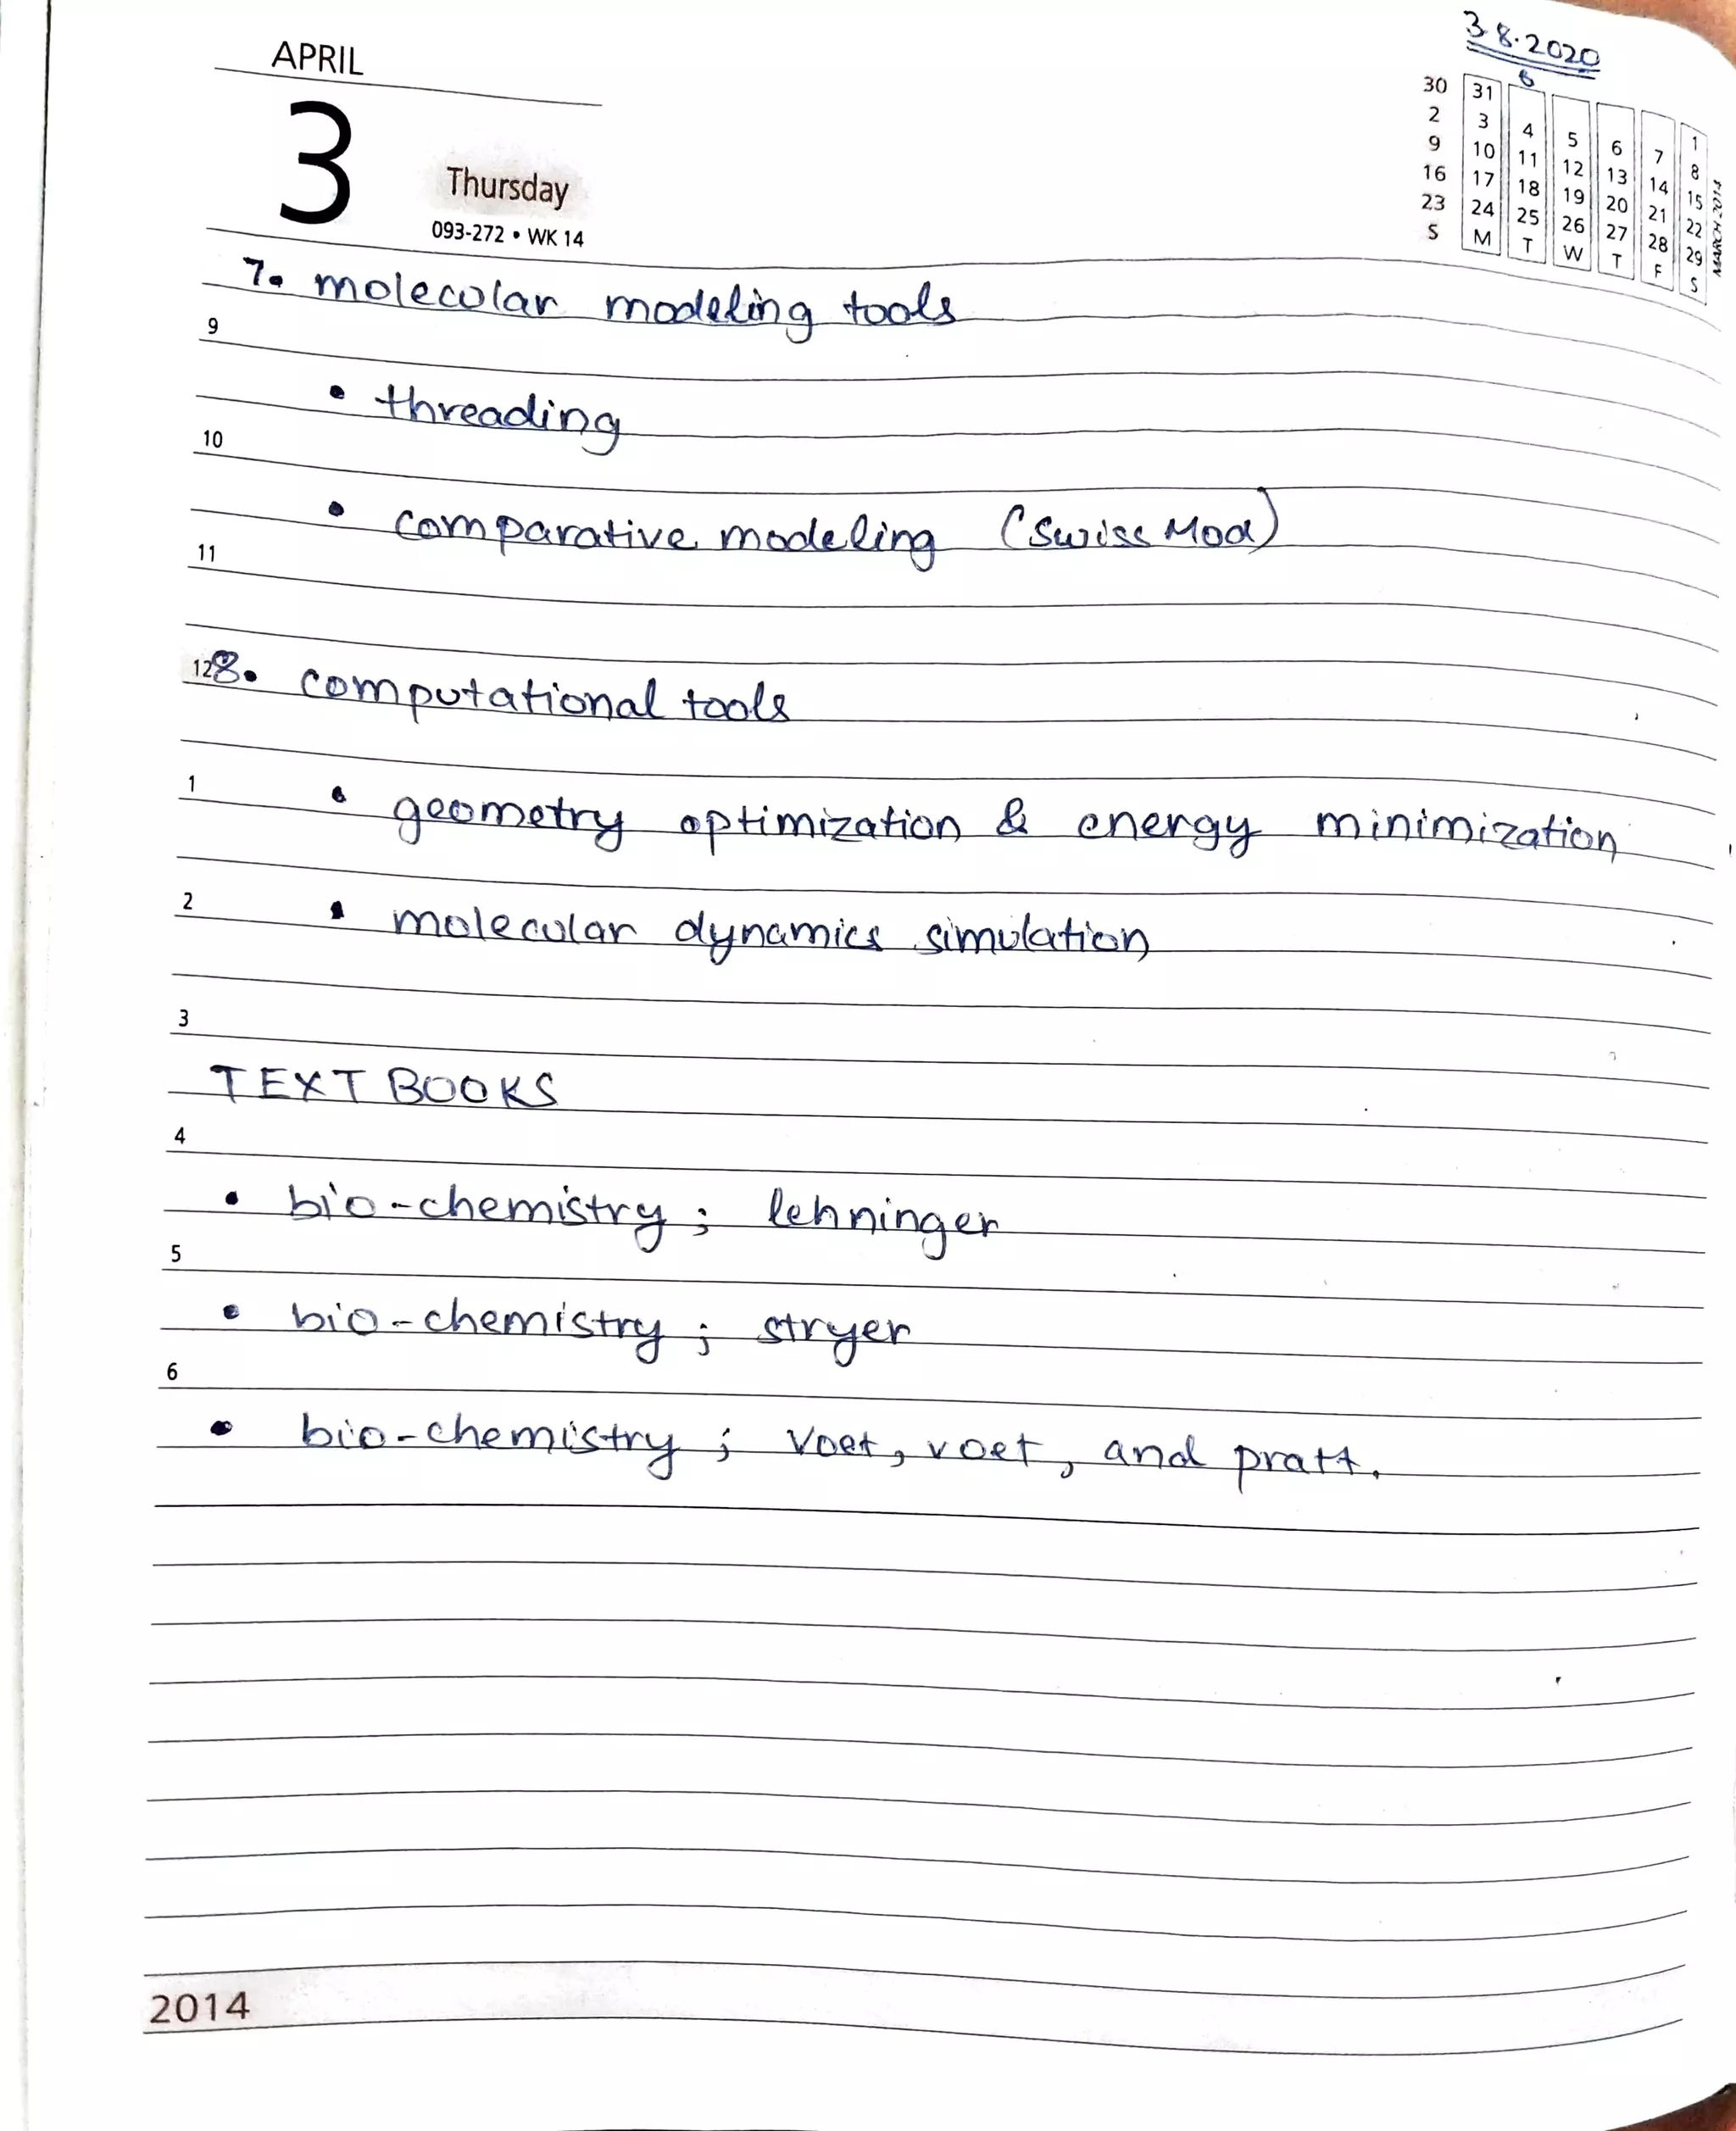 3.8.2020
APRIL
3
Thursday
093-272 • WK 14
30 31
2 3 4 5 6 7 1
9 10 11 12 13 14 8
16 17 18 19 20 21 15
23 24 25 26 27 28 22
S M T W T F 29
S
MARCH 2014
7. molecular modeling tools
9
• threading
10
• comparative modeling (Swiss Mod)
11
12 8. computational tools
1
• geometry optimization & energy minimization
2
• molecular dynamics simulation
3
TEXT BOOKS
4
• bio-chemistry; lehninger
5
• bio-chemistry; stryer
6
• bio-chemistry; Voet, voet, and pratt.
2014